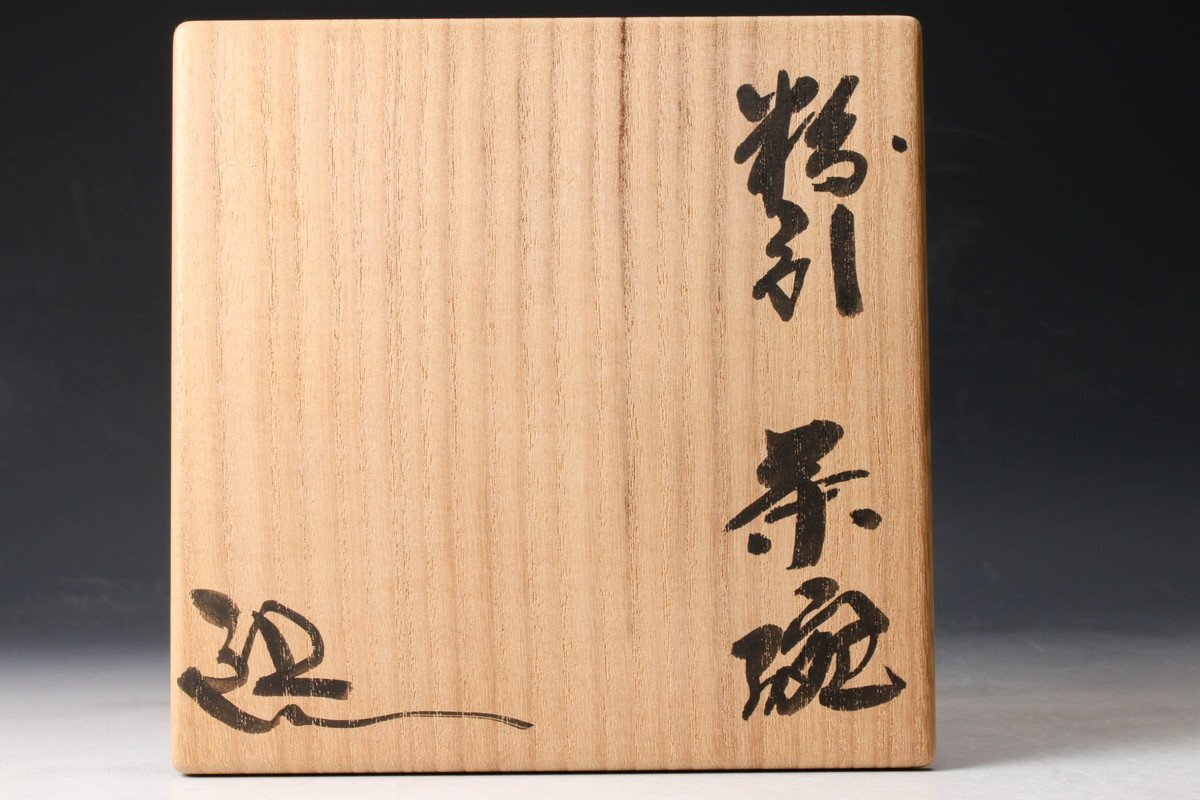 粉引 茶碗